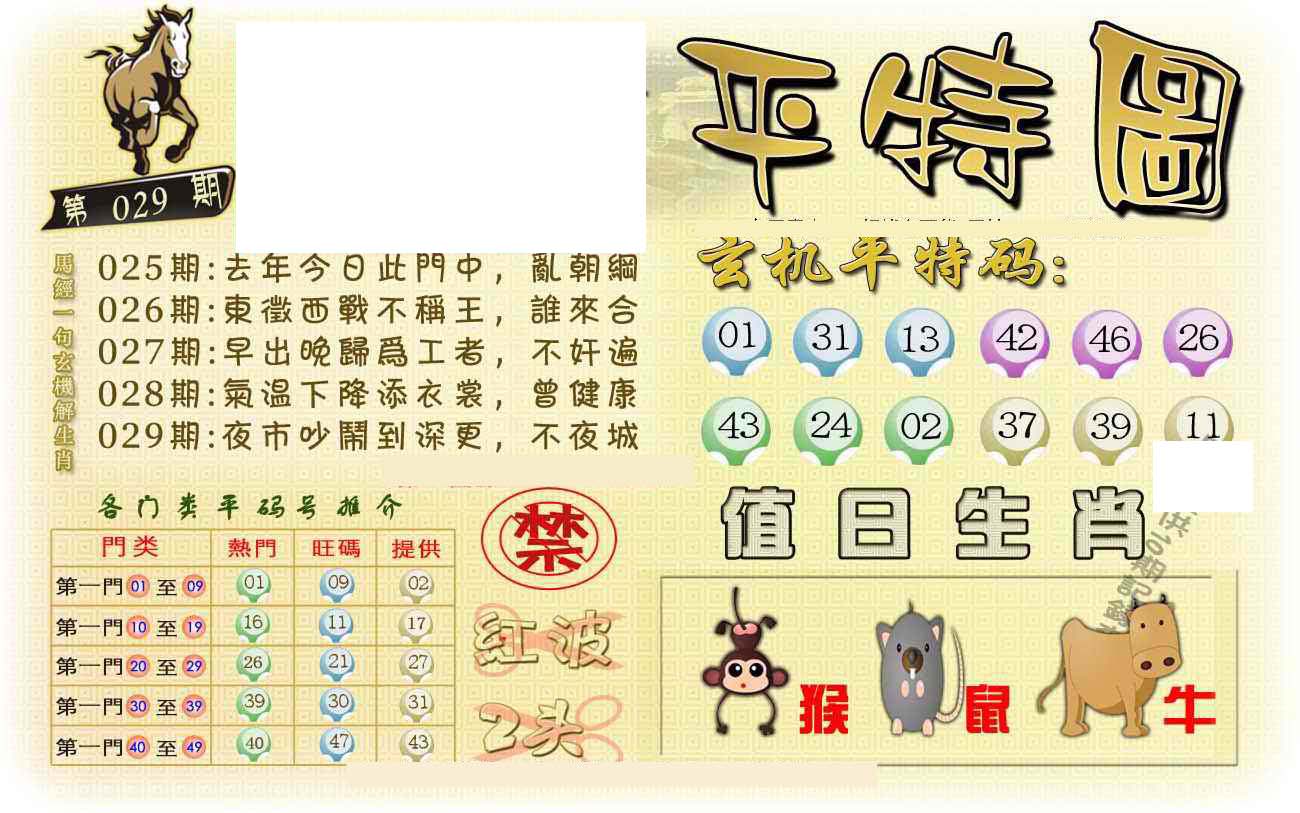 第 029 期
平特圖
馬經一句玄機解生肖
025期:去年今日此門中，亂朝綱
026期:東徵西戰不稱王，誰來合
027期:早出晚歸爲工者，不奸遍
028期:氣温下降添衣裳，曾健康
029期:夜市吵鬧到深更，不夜城
玄机平特码:
01 31 13 42 46 26
43 24 02 37 39 11
各门类平码号推介
門类 熱門 旺碼 提供
第一門 01 至 09 01 09 02
第一門 10 至 19 16 11 17
第一門 20 至 29 26 21 27
第一門 30 至 39 39 30 31
第一門 40 至 49 40 47 43
禁
红波
2头
值日生肖
猴 鼠 牛
供10期記錄